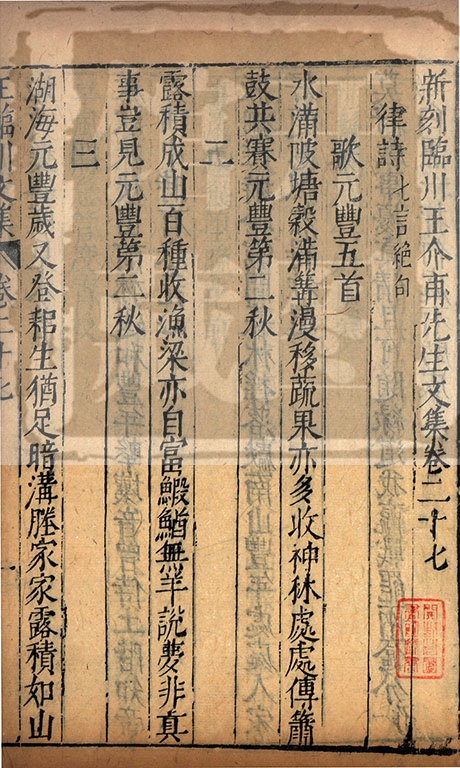 新刻臨川王介甫先生文集卷二十七
律詩七言絕句
歌元豐五首
水滿陂塘穀滿篝漫移蔬果亦多收神林處處傳簫
鼓共賽元豐第二秋
二
露積成山百種收漁梁亦自富鰕鰌無羊說夢非真
事豈見元豐第二秋
三
湖海元豐歲又登稆生猶足暗溝塍家家露積如山
王臨川文集 卷二十七